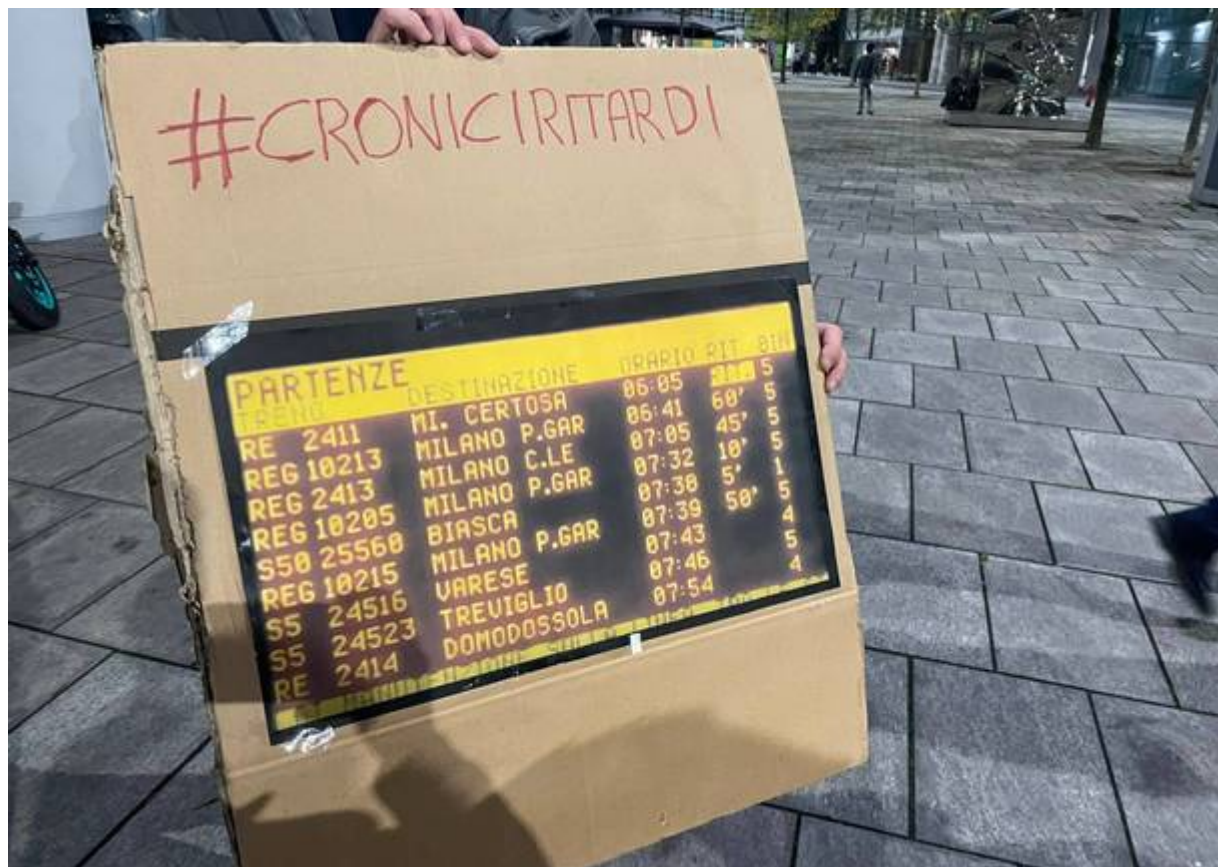 #CRONICIRITARDI
PARTENZE
TRENO DESTINAZIONE ORARIO RIT BIN
RE 2411 MI. CERTOSA 06:05 5
REG 10213 MILANO P.GAR 06:41 60' 5
REG 2413 MILANO C.LE 07:05 45' 5
REG 10205 MILANO P.GAR 07:32 10' 5
S50 25560 BIASCA 07:38 5' 1
REG 10215 MILANO P.GAR 07:39 50' 5
S5 24516 VARESE 07:43 4
S5 24523 TREVIGLIO 07:46 5
RE 2414 DOMODOSSOLA 07:54 4